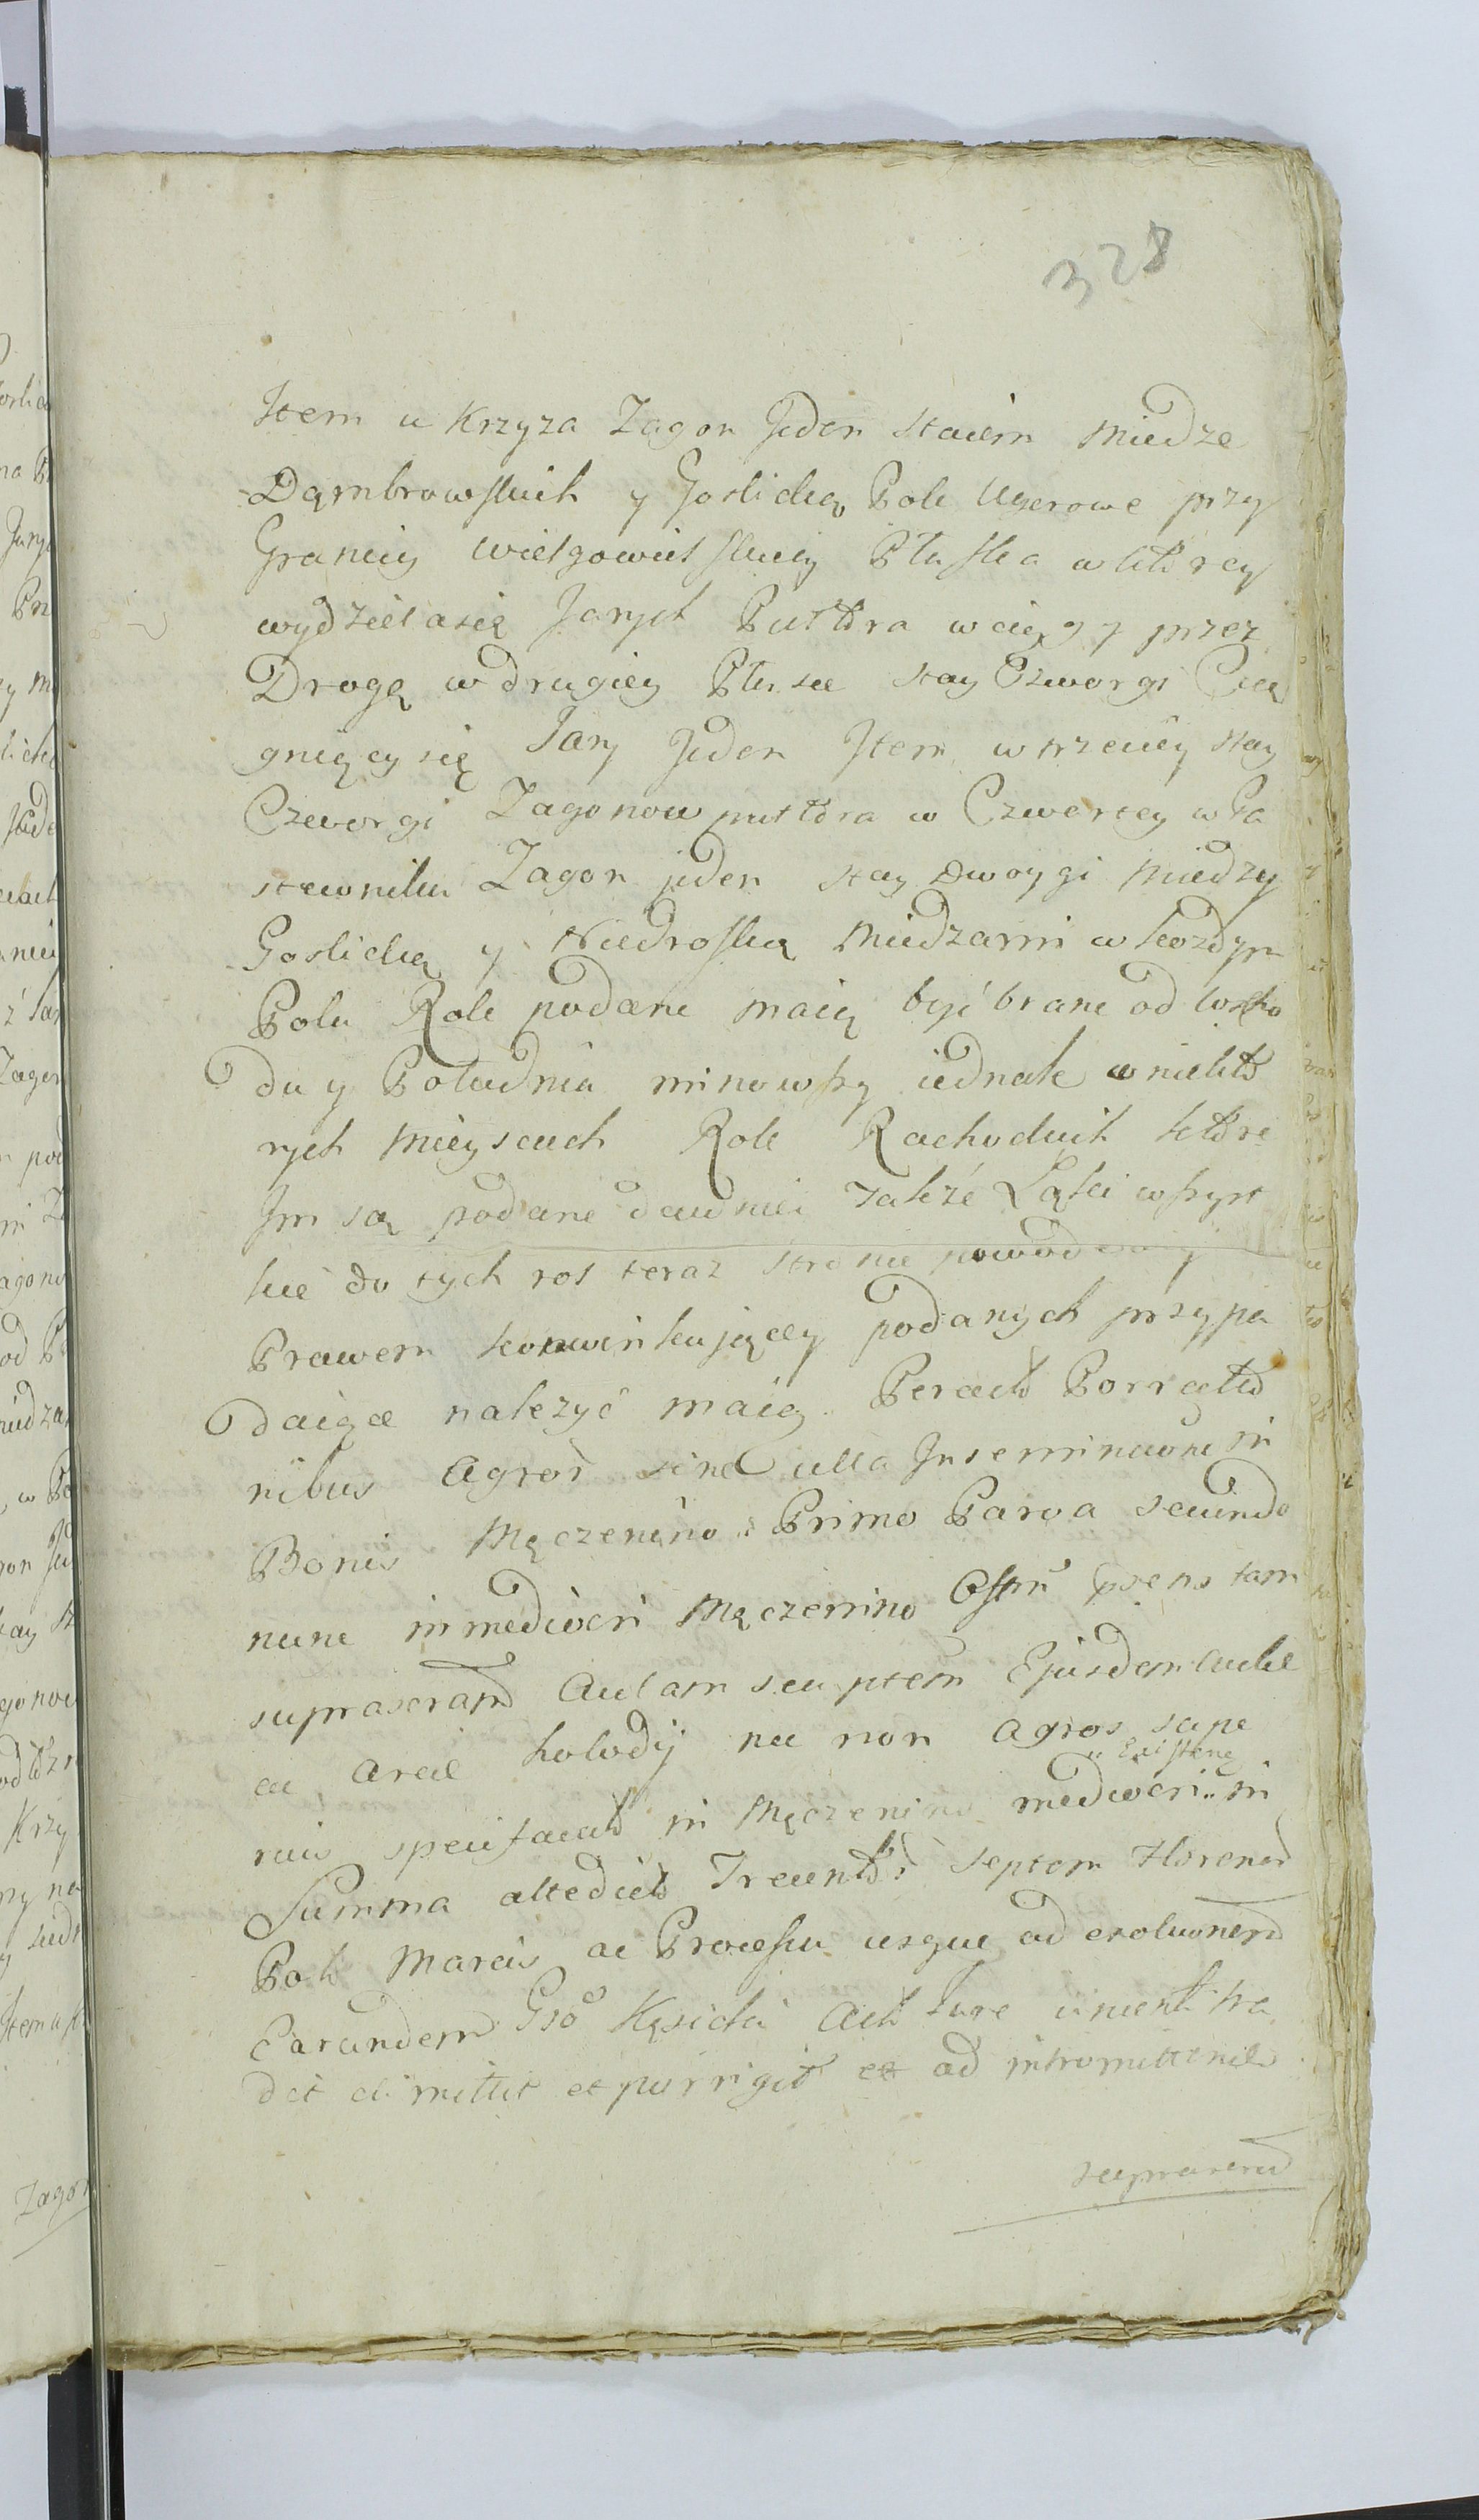 328
Item u Krzyza Zagon Jeden staiem Miedze
Dąmbrowskich y Goslicką Pole Ugerowe przy
Granicy wielgowieiskiey Płuska wktorey
wydzielasię Jarych Pułtora wciągу przez
Drogę wdrugiey Płusce stay Czworgi Cią
gnięcy się Jary Jeden Item w trzeciey stay
Czworgi Zagonow pułtora w Czwartey wPa
stewniku Zagon jeden stay Dwoygi Miedzy
Goslicką y Niedroską Miedzami wkozdym
Polu Role podane maią byi brane od wscho
du y Południa minowszy iednak w niekto
rych mieyscach Role Rachockich ktore
Im są podane dawniei takze Łąki wszyst
kie do tych rol teraz stronie powodowey
Prawem konwinkuiącey podanych przypa
daiące nalezyć maią. Peractis Porrectio
nibus Agror sine ulla Inseminatione in
Bonis Męczenino Primo Parva secundo
nunc in mediocri Męczenino Offm prens tam
suprascrapt Aulam seu ptem Ejusdem Aulæ
ac Areæ hołody nec non Agros supe
rius specificat in Męczenino mediocri in
Existen
Summa attedicta Trecentor septem Florenor
Pol Marcis ac Processu usque ad exolutionem
Earundem Gso Kęsicki Act Jure vincenti tra
dit dimittit et porrigit et ad intromittend
suprascrad